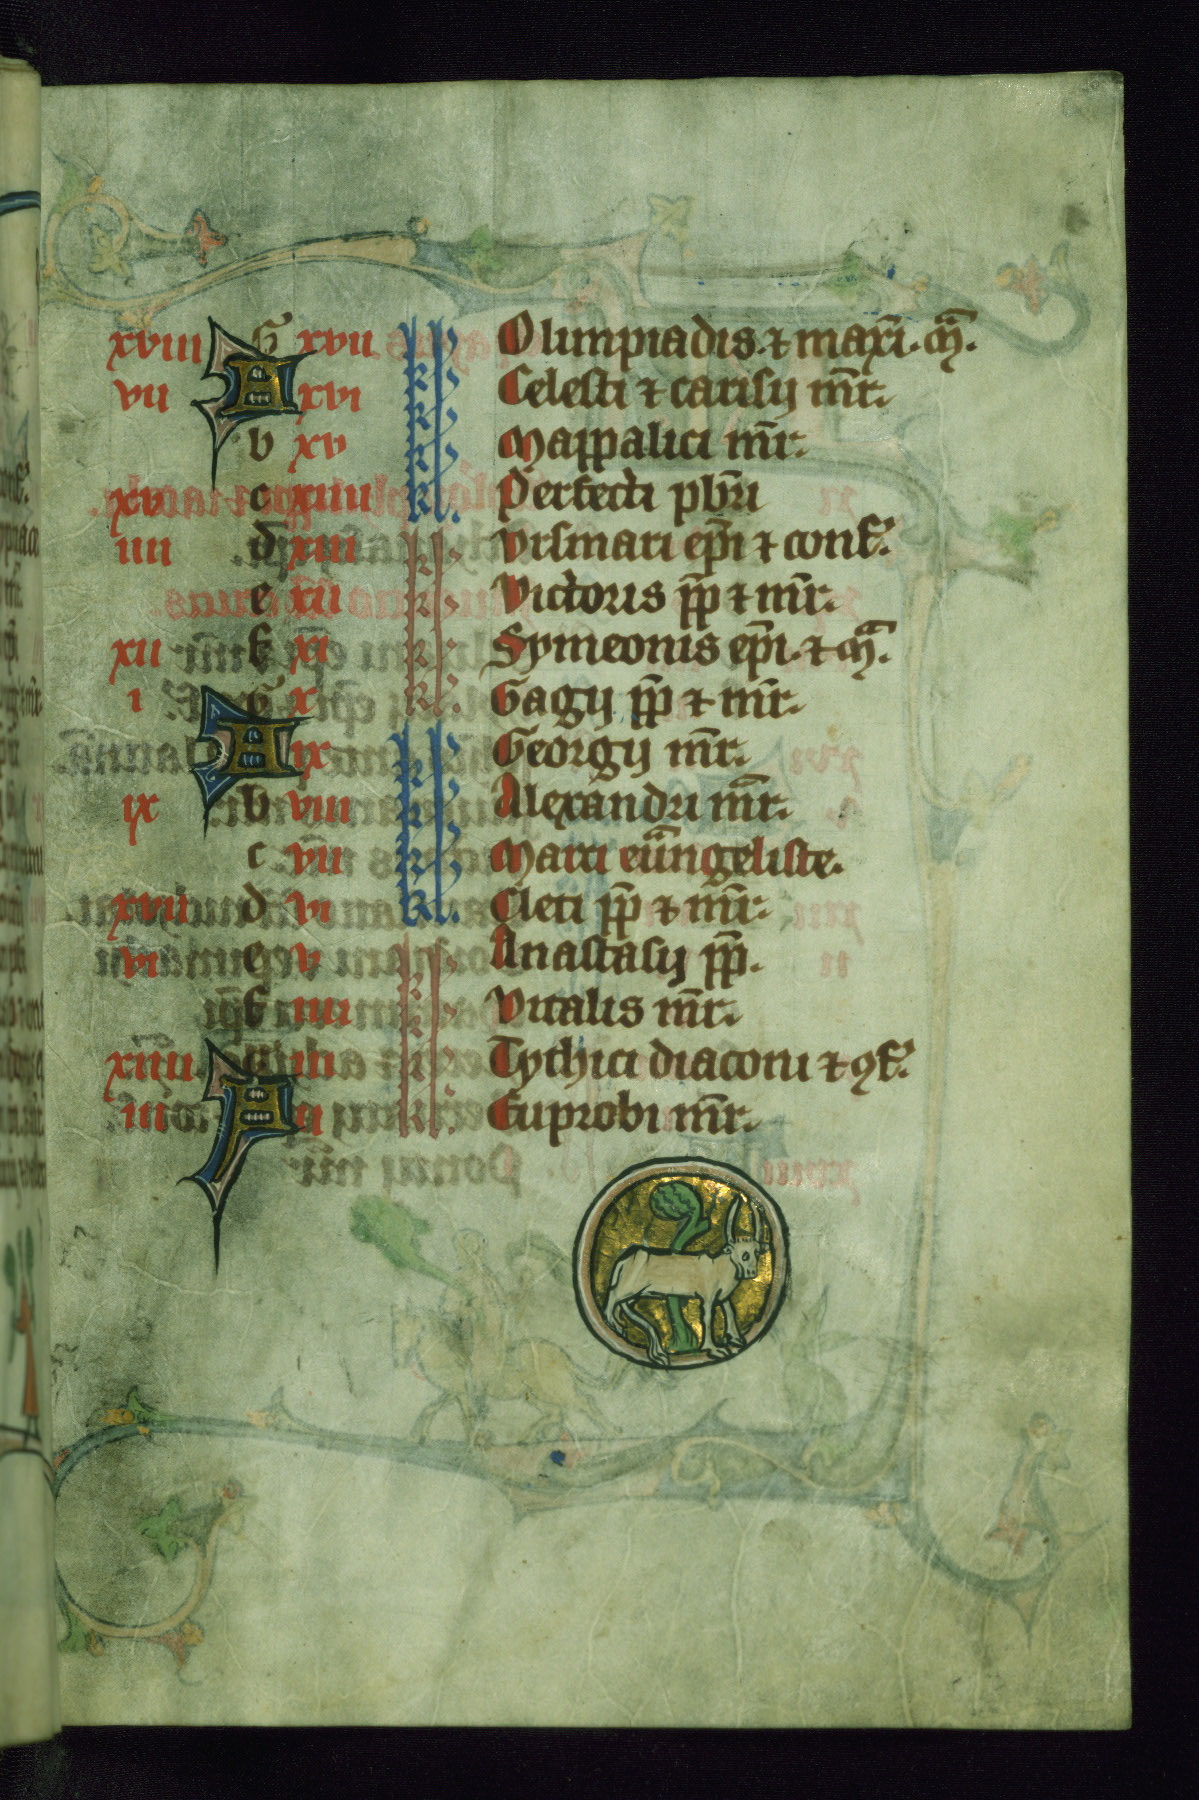 xviii G xvii kl Olimpiadis. ⁊ maxi͞. m͞.
vii A xvi kl Celesti ⁊ carisij mr͞.
b xv kl Mappalici mr͞.
xv c xiiii kl Perfecti pbr͞i
iiii d xiii kl Vrsmari ep͞i ⁊ conf.
e xii kl Victoris pp͞ ⁊ mr͞.
xii f xi kl Symeonis ep͞i. ⁊ m͞.
i g x kl Gagij pp͞ ⁊ mr͞.
A ix kl Georgij mr͞.
ix b viii kl Alexandri mr͞.
c vii kl Marci eu͞ngeliste.
xvii d vi kl Cleti pp͞ ⁊ mr͞.
vi e v kl Anastasij pp͞.
f iiii kl Vitalis mr͞.
xiiii g iii kl Tythici diaconi ⁊ ꝯf.
iii A ii kl Euprobi mr͞.